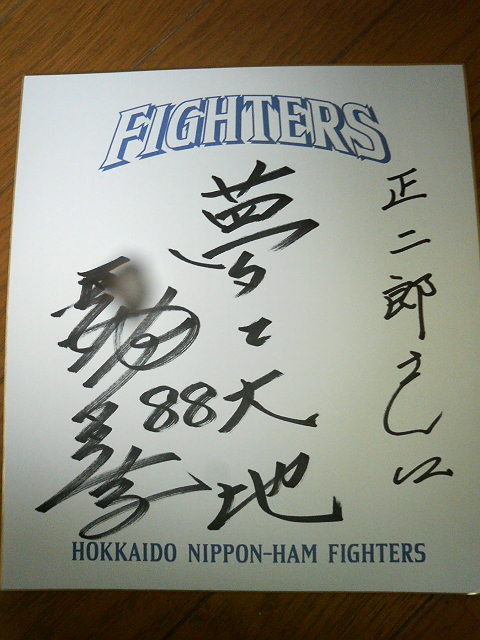 FIGHTERS
正二郎さん江
夢と大地
88
HOKKAIDO NIPPON-HAM FIGHTERS